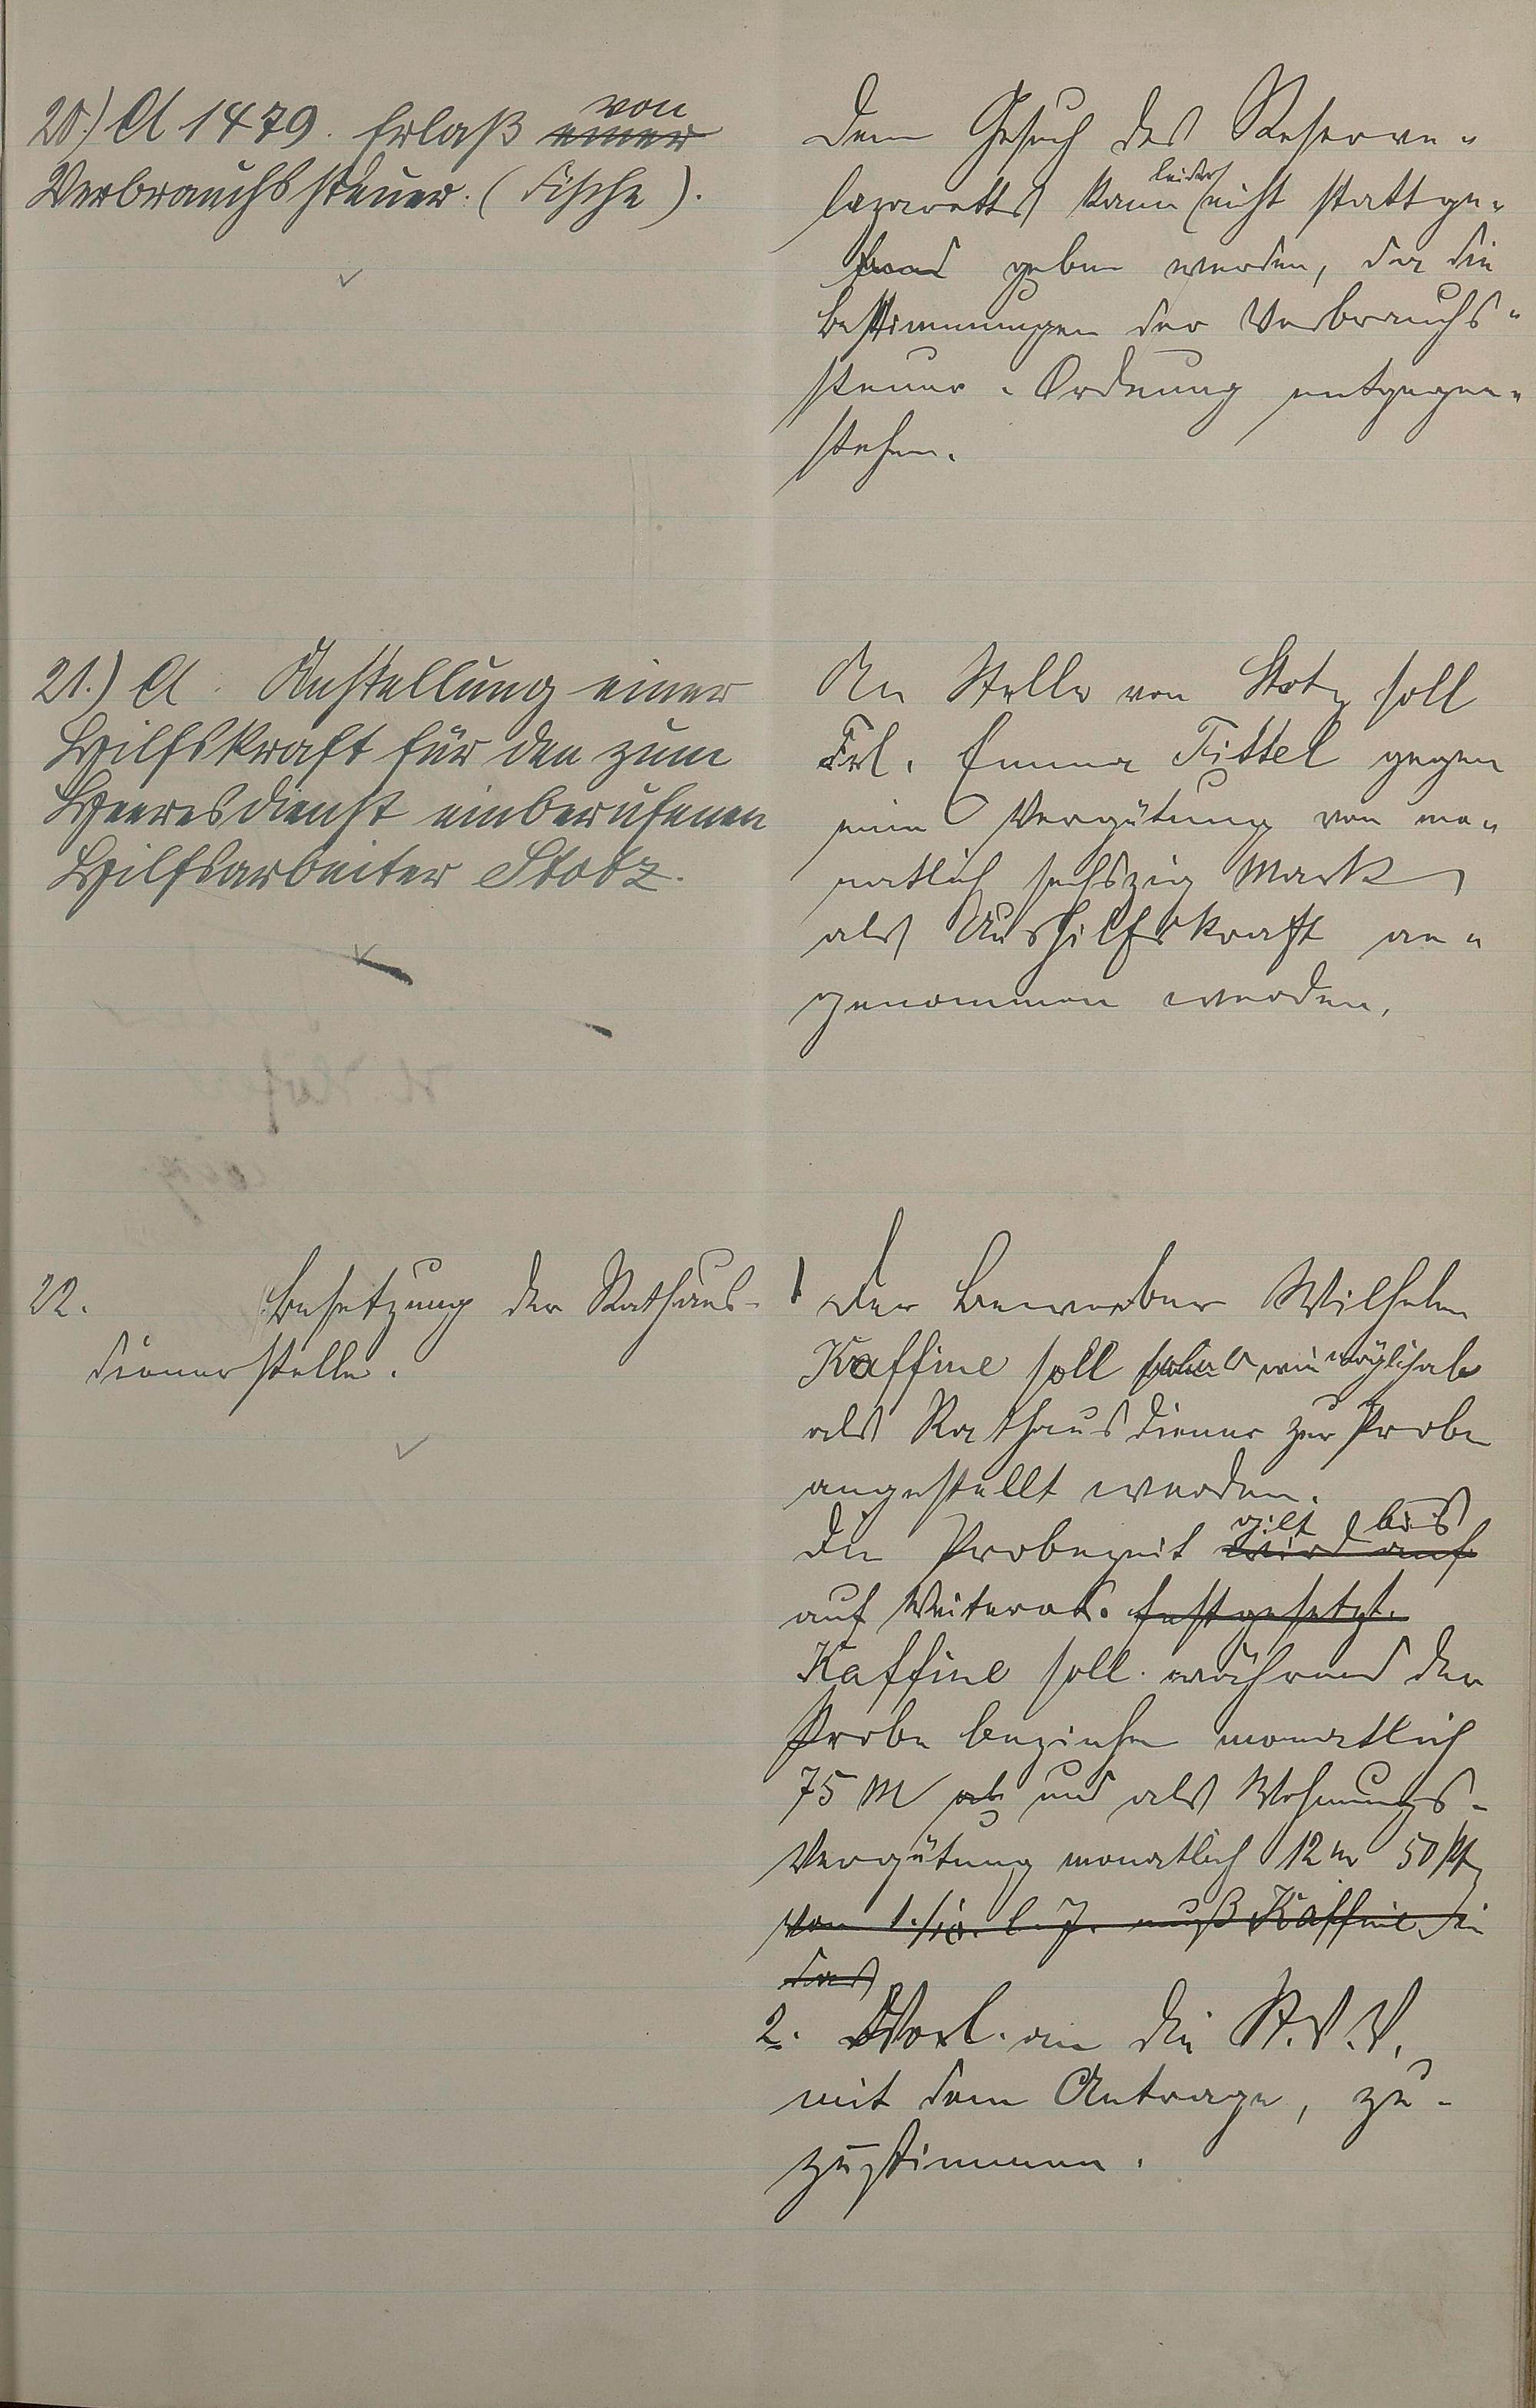 20.) A 1479. Erlaß einer von
Verbrauchssteuer. (Fische).
Dem Gesuch des Reserve-
lazaretts kann leider nicht stattge-
geben werden, da die
Bestimmungen der Verbrauchs-
steuer-Ordnung entgegen-
stehen.
21.) A. Anstellung einer
Hilfskraft für den zum
Heeresdienst einberufenen
Hilfsarbeiter Stotz.
An Stelle von Stotz soll
Frl. Emma Tittel gegen
eine Vergütung von mo-
natlich sechszig Mark
als Aushilfskraft an-
genommen werden.
22. Besetzung der Rathaus-
dienerstelle.
1 Der Bewerber Wilhelm
Kaffine soll wie möglich
als Rathausdiener zur Probe
angestellt werden.
Die Probezeit wird auf gilt bis
auf Weiteres. festgesetzt.
Kaffine soll während der
Probe beziehen monatlich
75 M als und als Wohnungs-
Vergütung monatlich 12 M 50 Pfg
vom 1./10. l. J. muß Kaffine in
das
2. Vorl. an die St.V.V.
mit dem Antrage, zu-
zustimmen.